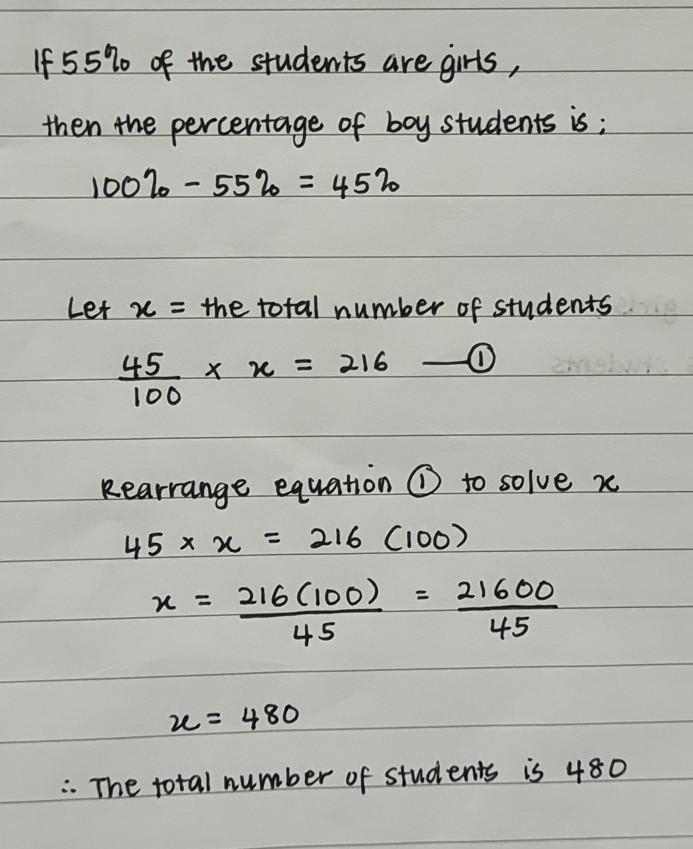 If 55% of the students are girls,
then the percentage of boy students is;
100% - 55% = 45%
Let x = the total number of students
45/100 × x = 216 —①
Rearrange equation ① to solve x
45 × x = 216 (100)
x = 216(100)/45 = 21600/45
x = 480
∴ The total number of students is 480